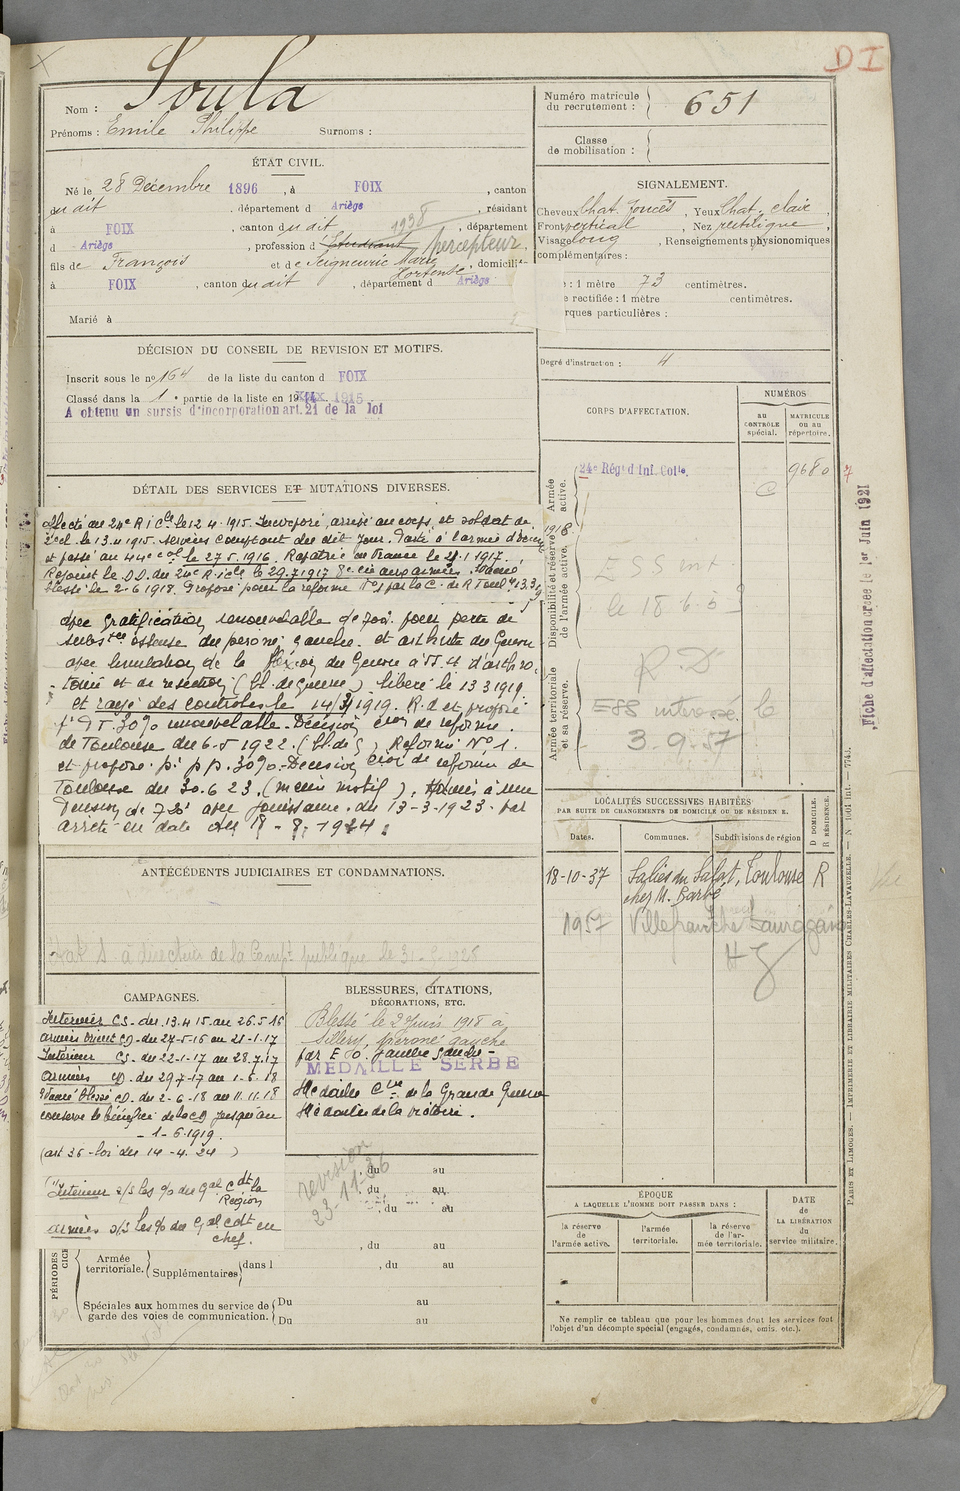 DI
Nom : Soula
Prénoms : Emile Philippe Surnoms :
ÉTAT CIVIL.
Né le 28 Décembre 1896, à FOIX, canton
du dit, département d Ariège, résidant
à FOIX, canton du dit 1938, département
d Ariège, profession d Etudiant percepteur
fils de François et de Seigneurie Marie Hortense, domicili
à FOIX, canton du dit, département d Ariège
Marié à
DÉCISION DU CONSEIL DE REVISION ET MOTIFS.
Inscrit sous le no 164 de la liste du canton d FOIX
Classé dans la 1e partie de la liste en 1915
A obtenu un sursis d'incorporation art. 21 de la loi
DÉTAIL DES SERVICES ET MUTATIONS DIVERSES.
affecté au 24e R i Cle le 12 4. 1915. Incorporé, arrivé au corps, et soldat de
2e cl. le 13.4.1915. Services comptant du dit jour. Passé à l'armée d'Orient
et passé au 44e col. le 27.5.1916. Rapatrié en France le 21.1.1917.
Rejoint le DD. du 24e R. icle le 29.7.1917 8e cie aux armées.
blessé le 2-6 1918. Proposé pour la réforme No 1 par la C. de R Toul 13.3
avec gratification renouvelable de pour perte de
subs osseuse du péroné gauche. et arthrite du Genou
avec limitation de la flexion du Genou à suite d'arthro
tomie et de résection (bl. de guerre). libéré le 13 3 1919.
et rayé des controles le 14/3/1919. R.d et proposé
p. P T. 30% renouvelable. Décision cion de réforme
de Toulouse du 6-5 1922. (bl. de g) Reformé No 1.
et proposé pi pp. 30%. Décision cion de réforme de
Toulouse du 30.6 23. (même motif). Admis à une
Pension de 720 avec jouissance. du 13-3-1923. par
arrêté en date du 18-8-1924.
ANTÉCÉDENTS JUDICIAIRES ET CONDAMNATIONS.
à direction de la Compté publique le 31-5-1928
CAMPAGNES.
Intérieur CS. du 13.4 15. au 26.5-16
armée Orient CD. du 27-5-16 au 21-1-17
Intérieur CS. du 22-1-17 au 28.7.17
armées CD. du 29-7-17 au 1-6.18
Évacué blessé CD. du 2-6-18 au 11.11.18
conserve le bénéfice de la CD jusqu'au
- 1-6.1919.
(art 36-loi du 14-4.24)
Intérieur s/s les o/o du Gal Cdt la
Région
armées s/s les o/o du Gal Cdt en
chef.
BLESSURES, CITATIONS,
DÉCORATIONS, ETC.
Blessé le 2 Juin 1918 à
Sillery, péroné gauche
par E O. jambe gauche-
MEDAILLE SERBE
Médaille Cive de la Grande Guerre
Médaille de la victoire.
revision
23-11-36
, du au
, du au
, du au
, du au
PÉRIODES
Armée territoriale. Supplémentaires dans l , du au
Spéciales aux hommes du service de garde des voies de communication. Du au
Du au
Numéro matricule du recrutement : 651
Classe de mobilisation :
SIGNALEMENT.
Cheveux Chat. foncés, Yeux Chat. clair,
Front vertical, Nez rectiligne,
Visage long, Renseignements physionomiques
complémentaires :
: 1 mètre 73 centimètres.
e rectifiée : 1 mètre centimètres.
rques particulières :
Degré d'instruction : 4
CORPS D'AFFECTATION.
NUMÉROS
au CONTRÔLE spécial.
MATRICULE ou au répertoire.
Armée active.
24e Régt d'Inf. Colle. C 9680 7
Disponibilité et réserve de l'armée active. 1918
ESS int.
le 18-6-5
Armée territoriale et sa réserve.
R.D
ESS intéressé le
3-9-57
LOCALITÉS SUCCESSIVES HABITÉES
PAR SUITE DE CHANGEMENTS DE DOMICILE OU DE RÉSIDENCE.
Dates. Communes. Subdivisions de région
D DOMICILE. R RÉSIDENCE.
18-10-37 Salies du Salat, Toulouse R
chez M. Barbé
1957 Villefranche Lauragais
HG
ÉPOQUE
A LAQUELLE L'HOMME DOIT PASSER DANS :
la réserve de l'armée active. l'armée territoriale. la réserve de l'armée territoriale.
DATE de LA LIBÉRATION du service militaire.
Ne remplir ce tableau que pour les hommes dont les services font
l'objet d'un décompte spécial (engagés, condamnés, omis, etc.).
Fiche d'affectation créée le 1er Juin 1921
PARIS ET LIMOGES. — IMPRIMERIE ET LIBRAIRIE MILITAIRES CHARLES-LAVAUZELLE. — N° 1001 int. — 7743.